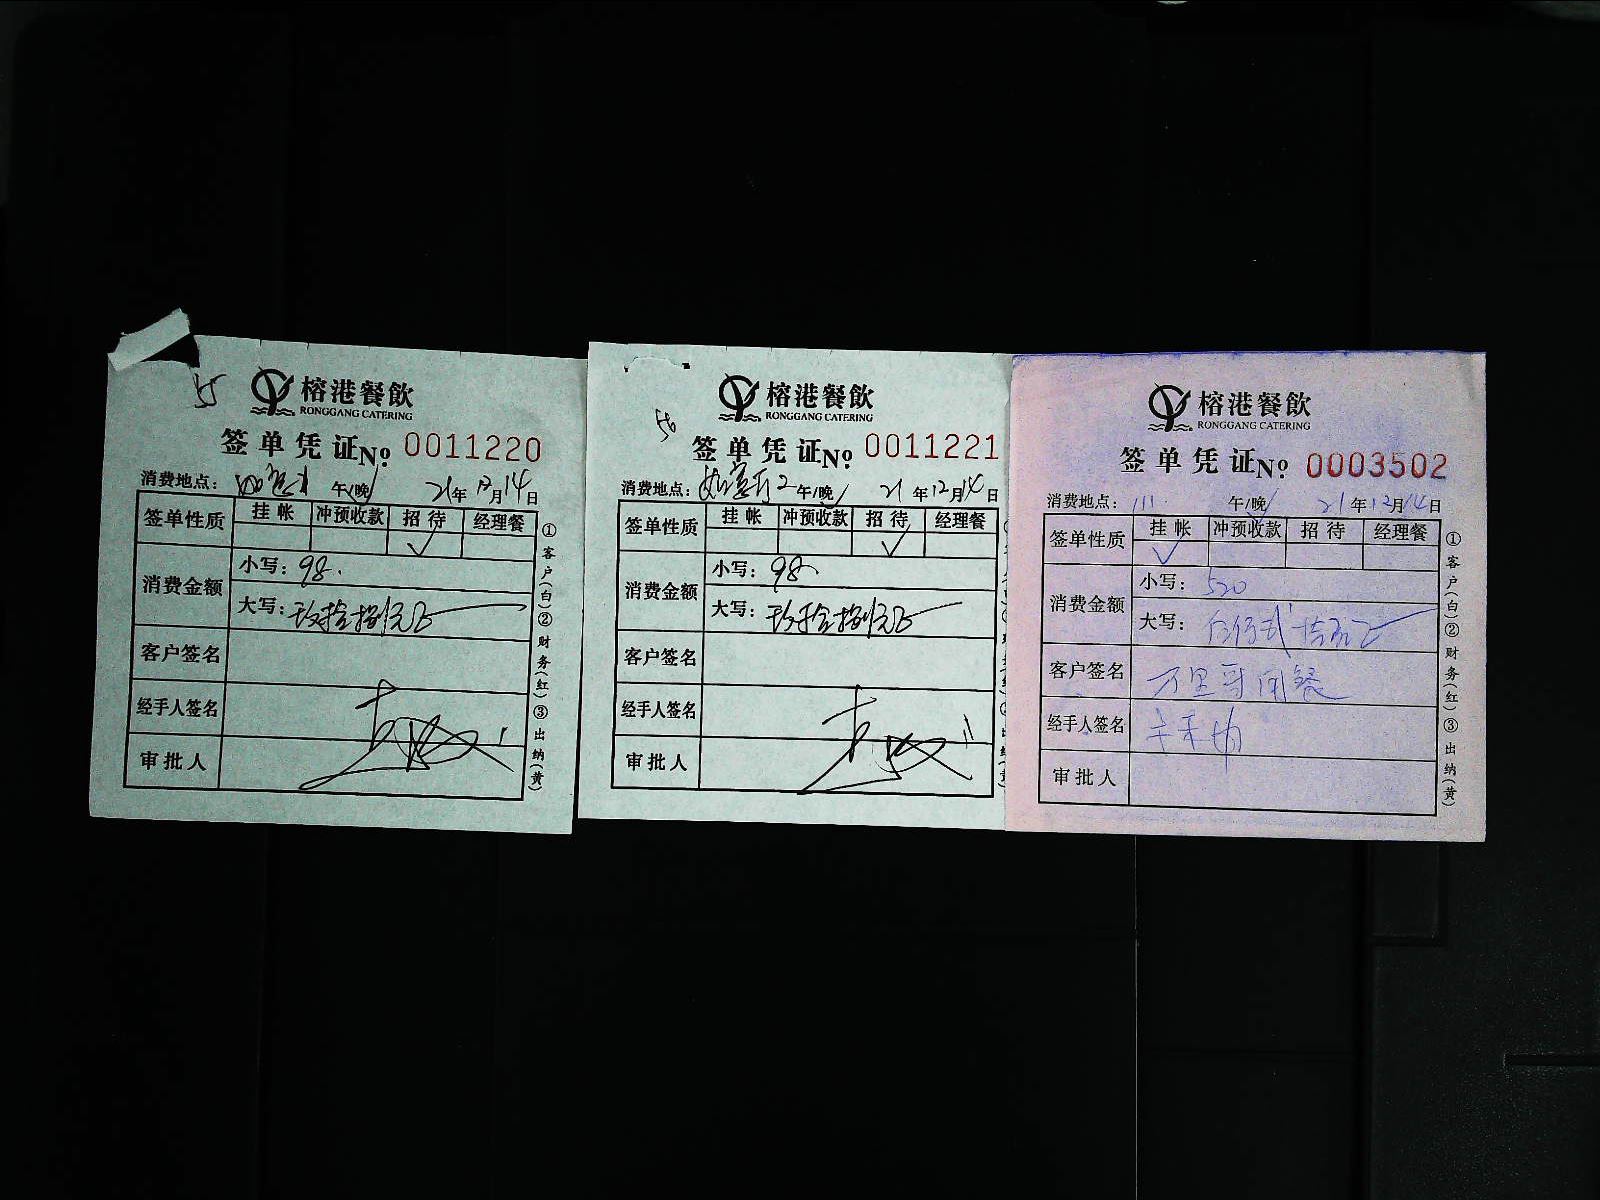 55
榕港餐飲
RONGGANG CATERING
签单凭证No. 0011220
消费地点： 午/晚 21年12月14日
签单性质 挂帐 冲预收款 招待 经理餐
✓
消费金额 小写：98.
大写：玖拾捌元正
客户签名
经手人签名
审批人
①客户(白)②财务(红)③出纳(黄)
56
榕港餐飲
RONGGANG CATERING
签单凭证No. 0011221
消费地点： 2 午/晚 21年12月14日
签单性质 挂帐 冲预收款 招待 经理餐
✓
消费金额 小写：98.
大写：玖拾捌元正
客户签名
经手人签名
审批人
榕港餐飲
RONGGANG CATERING
签单凭证No. 0003502
消费地点：111. 午/晚 21年12月14日
签单性质 挂帐 冲预收款 招待 经理餐
✓
消费金额 小写：520
大写：伍佰贰拾元正
客户签名 万里哥用餐
经手人签名
审批人
①客户(白)②财务(红)③出纳(黄)